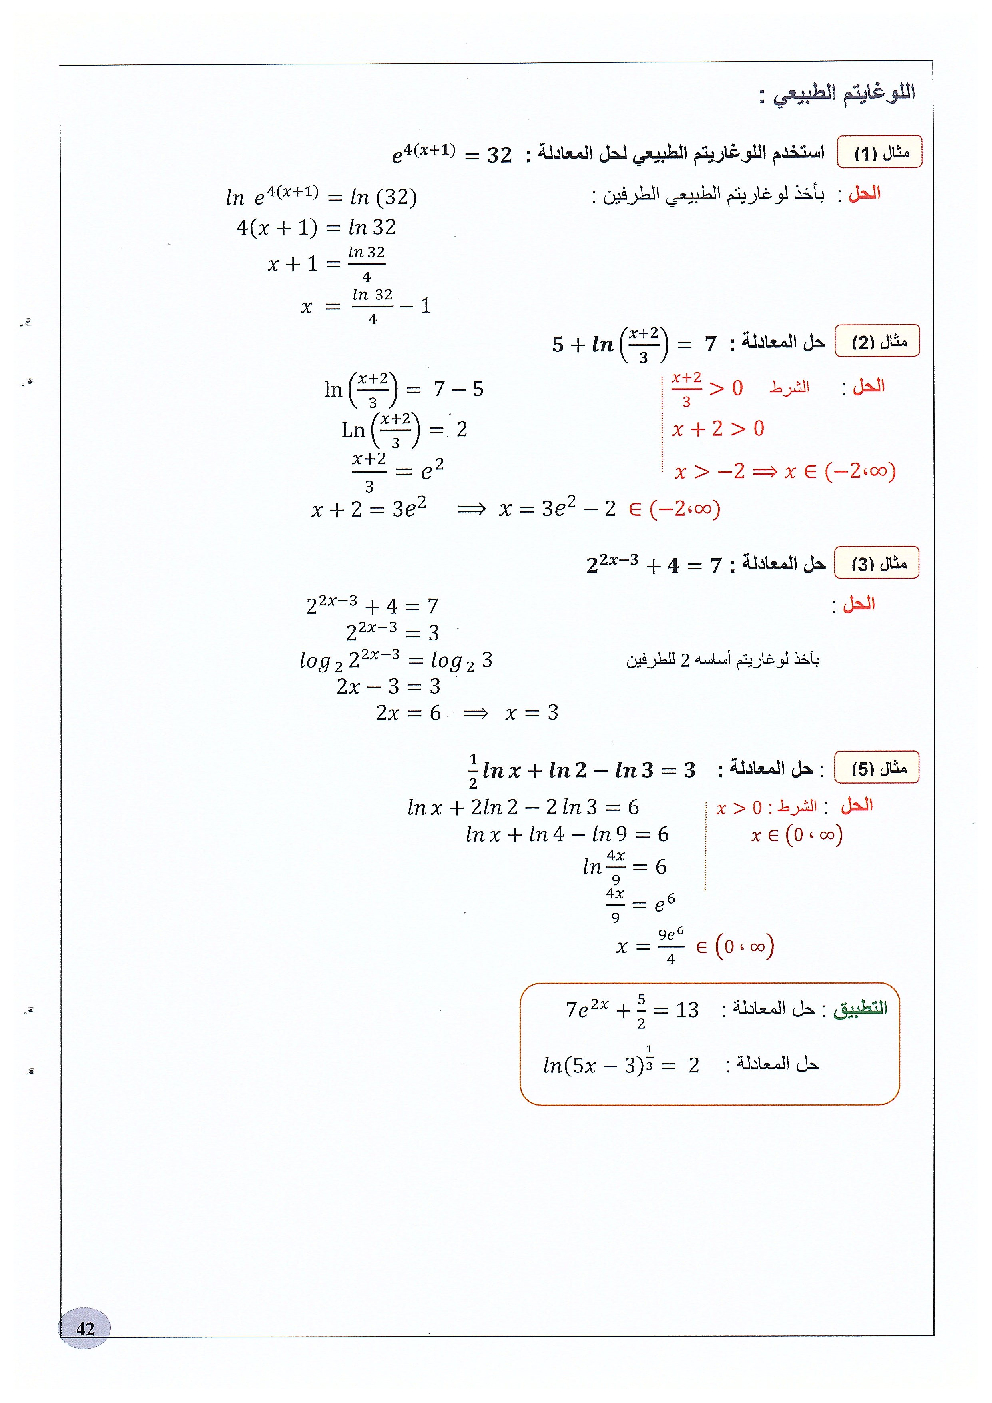 اللوغايتم الطبيعي :
مثال (1) استخدم اللوغاريتم الطبيعي لحل المعادلة : e^{4(x+1)} = 32
الحل : بأخذ لوغاريتم الطبيعي الطرفين :
ln e^{4(x+1)} = ln (32)
4(x + 1) = ln 32
x + 1 = \frac{ln 32}{4}
x = \frac{ln 32}{4} − 1
مثال (2) حل المعادلة : 5 + ln(\frac{x+2}{3}) = 7
الحل : الشرط \frac{x+2}{3} > 0
x + 2 > 0
x > −2 ⟹ x ∈ (−2،∞)
ln(\frac{x+2}{3}) = 7 − 5
Ln(\frac{x+2}{3}) = 2
\frac{x+2}{3} = e^2
x + 2 = 3e^2 ⟹ x = 3e^2 − 2 ∈ (−2،∞)
مثال (3) حل المعادلة : 2^{2x−3} + 4 = 7
الحل :
2^{2x−3} + 4 = 7
2^{2x−3} = 3
بأخذ لوغاريتم أساسه 2 للطرفين log_2 2^{2x−3} = log_2 3
2x − 3 = 3
2x = 6 ⟹ x = 3
مثال (5) : حل المعادلة : \frac{1}{2} ln x + ln 2 − ln 3 = 3
الحل : الشرط : x > 0
x ∈ (0 ، ∞)
ln x + 2ln 2 − 2 ln 3 = 6
ln x + ln 4 − ln 9 = 6
ln \frac{4x}{9} = 6
\frac{4x}{9} = e^6
x = \frac{9e^6}{4} ∈ (0 ، ∞)
التطبيق : حل المعادلة : 7e^{2x} + \frac{5}{2} = 13
حل المعادلة : ln(5x − 3)^{\frac{1}{3}} = 2
42